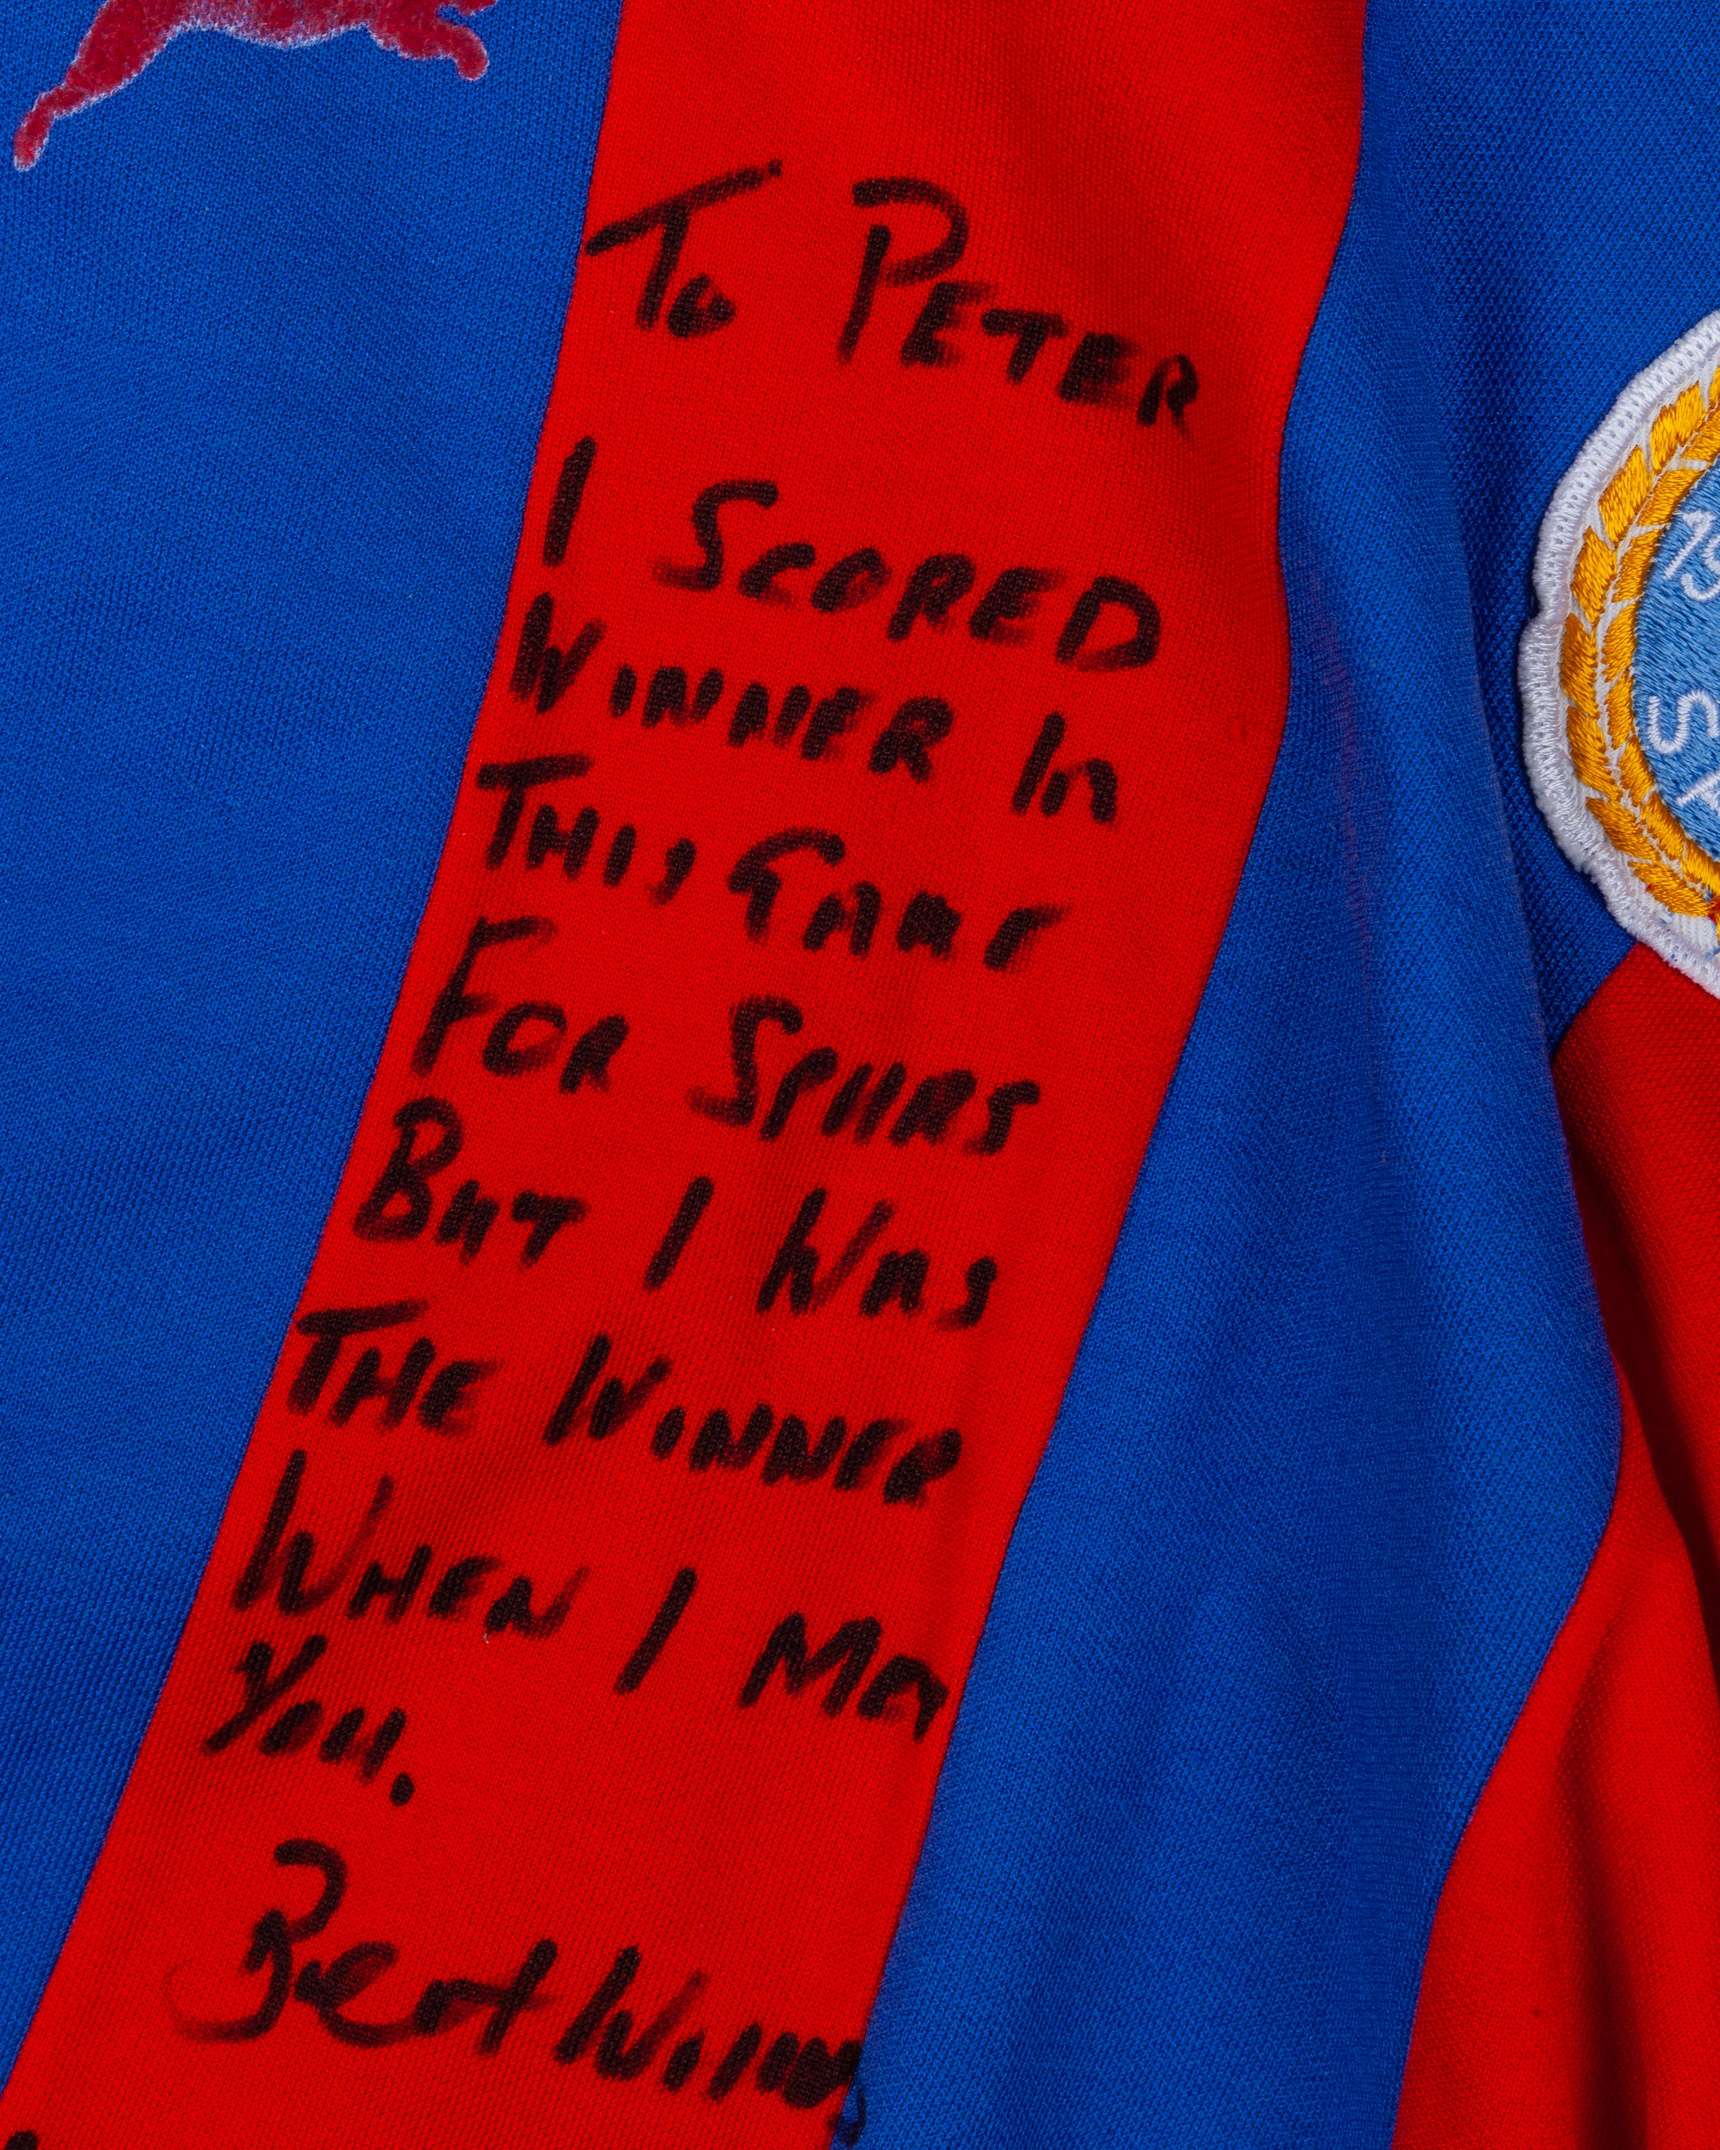 To PETER
I SCORED
WINNER In
THIS GAME
FOR SPURS
BUT I WAS
THE WINNER
WHEN I MET
YOU.
Best Wishes
19
SA